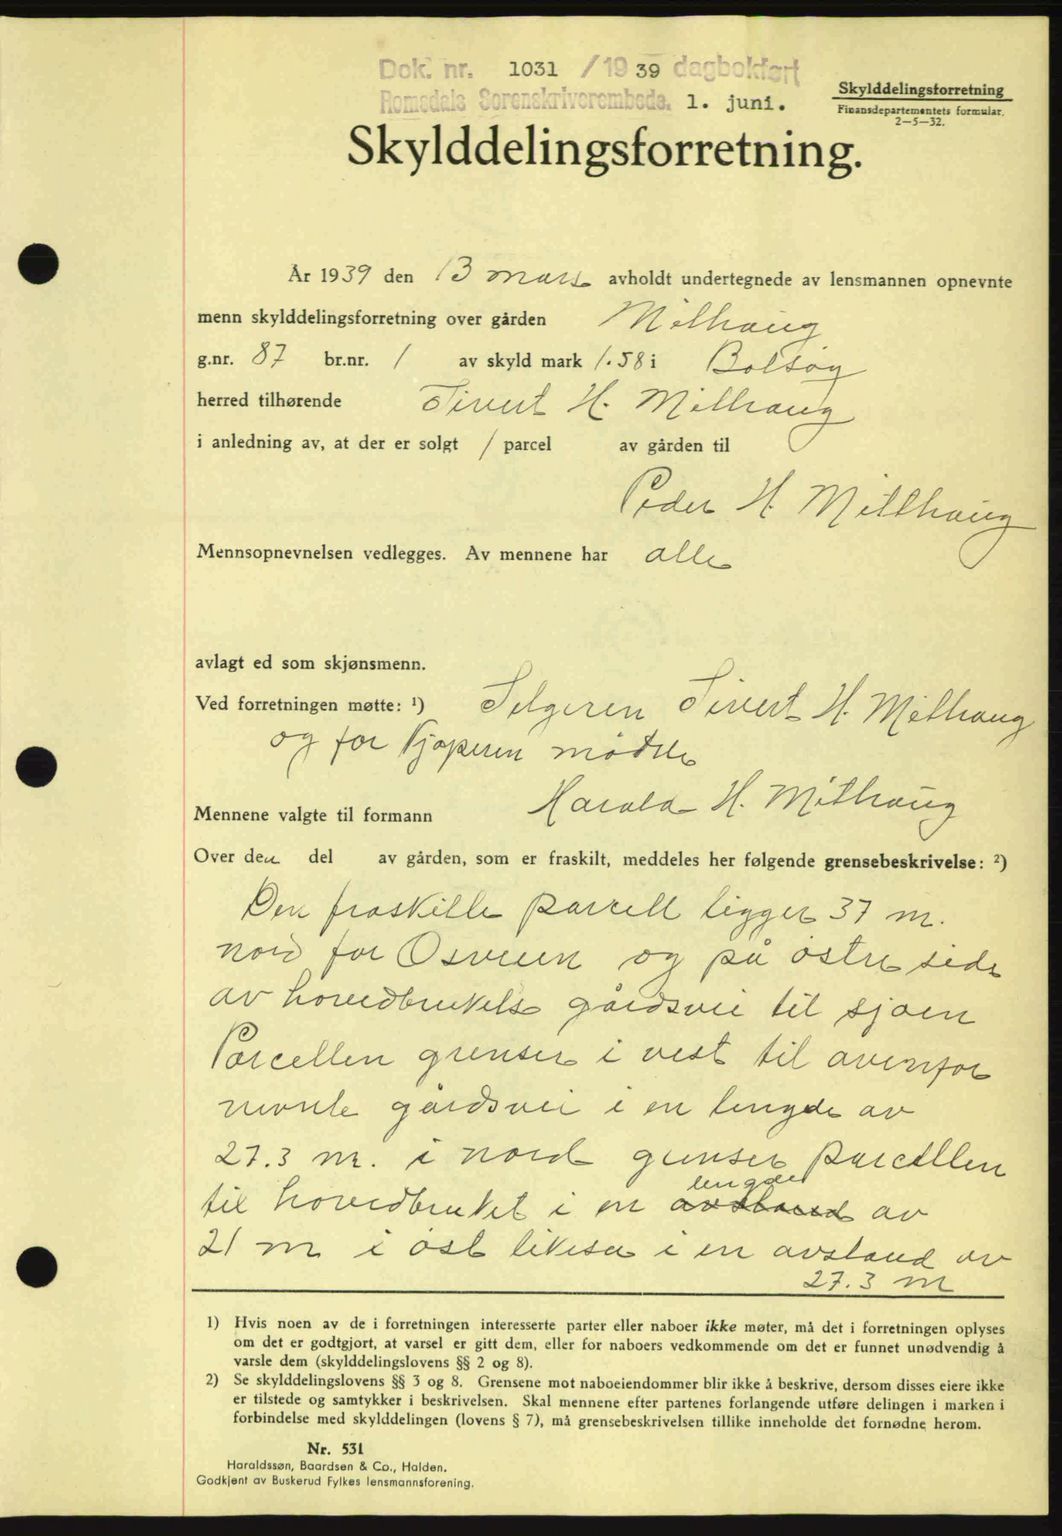 Dok. nr. 1031 /19 39 dagbokført
Romsdals Sorenskriverembede. 1. juni.
Skylddelingsforretning
Finansdepartementets formular.
2—5—32.
Skylddelingsforretning.
År 1939 den 13 mars avholdt undertegnede av lensmannen opnevnte
menn skylddelingsforretning over gården Mælhaug
g.nr. 87 br.nr. 1 av skyld mark 1.58 i Bolsøy
herred tilhørende Sivert H. Mælhaug
i anledning av, at der er solgt 1 parcel av gården til
Peder H. Mælhaug
Mennsopnevnelsen vedlegges. Av mennene har alle
avlagt ed som skjønsmenn.
Ved forretningen møtte: 1) Selgeren Sivert H. Mælhaug
og for kjøperen møtte
Mennene valgte til formann Harald H. Mælhaug
Over den del av gården, som er fraskilt, meddeles her følgende grensebeskrivelse: 2)
Den fraskilte parcell ligger 37 m.
nord for Osveien og på østre side
av hovedbrukets gårdsvei til sjøen
Parcellen grenser i vest til ovenfor
nevnte gårdsvei i en lengde av
27.3 m. i nord grenser parcellen
til hovedbruket i en avstand lengde av
21 m i øst likeså i en avstand av
27.3 m
1) Hvis noen av de i forretningen interesserte parter eller naboer ikke møter, må det i forretningen oplyses
om det er godtgjort, at varsel er gitt dem, eller for naboers vedkommende om det er funnet unødvendig å
varsle dem (skylddelingslovens §§ 2 og 8).
2) Se skylddelingslovens §§ 3 og 8. Grensene mot naboeiendommer blir ikke å beskrive, dersom disses eiere ikke
er tilstede og samtykker i beskrivelsen. Skal mennene efter partenes forlangende utføre delingen i marken i
forbindelse med skylddelingen (lovens § 7), må grensebeskrivelsen tillike inneholde det fornødne herom.
Nr. 531
Haraldssøn, Baardsen & Co., Halden.
Godkjent av Buskerud Fylkes lensmannsforening.